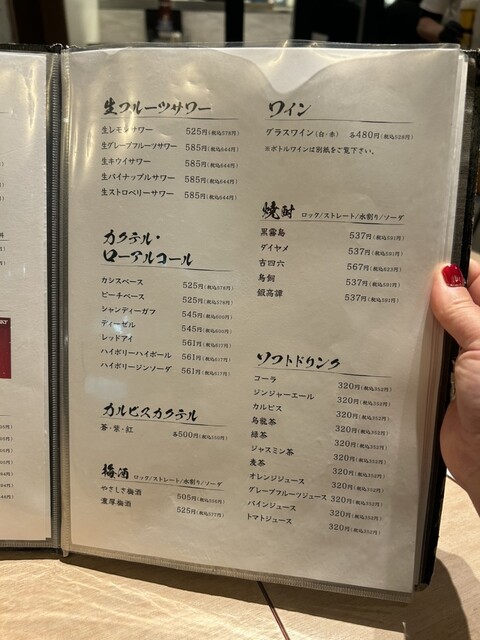 生フルーツサワー
生レモンサワー 525円(税込578円)
生グレープフルーツサワー 585円(税込644円)
生キウイサワー 585円(税込644円)
生パイナップルサワー 585円(税込644円)
生ストロベリーサワー 585円(税込644円)
カクテル・
ローアルコール
カシスベース 525円(税込578円)
ピーチベース 525円(税込578円)
シャンディーガフ 545円(税込600円)
ディーゼル 545円(税込600円)
レッドアイ 561円(税込617円)
ハイボリーハイボール 561円(税込617円)
ハイボリージンソーダ 561円(税込617円)
カルピスカクテル
蒼・紫・紅 各500円(税込550円)
梅酒 ロック/ストレート/水割り/ソーダ
やさしき梅酒 505円(税込556円)
濃厚梅酒 525円(税込577円)
ワイン
グラスワイン(白・赤) 各480円(税込528円)
※ボトルワインは別紙をご覧下さい。
焼酎 ロック/ストレート/水割り/ソーダ
黒霧島 537円(税込591円)
ダイヤメ 537円(税込591円)
吉四六 567円(税込623円)
鳥飼 537円(税込591円)
鍛高譚 537円(税込591円)
ソフトドリンク
コーラ 320円(税込352円)
ジンジャーエール 320円(税込352円)
カルピス 320円(税込352円)
烏龍茶 320円(税込352円)
緑茶 320円(税込352円)
ジャスミン茶 320円(税込352円)
麦茶 320円(税込352円)
オレンジジュース 320円(税込352円)
グレープフルーツジュース 320円(税込352円)
パインジュース 320円(税込352円)
トマトジュース 320円(税込352円)